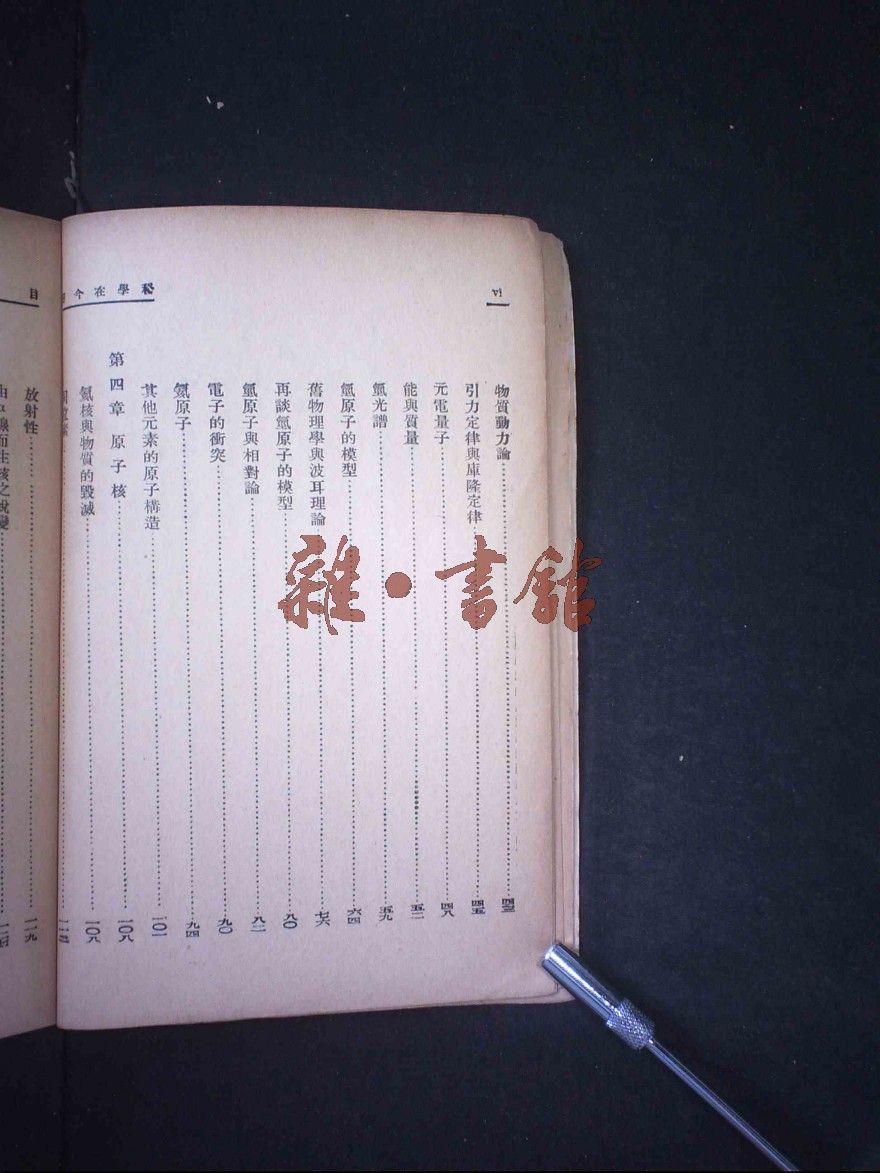 科學在今
vi
物質動力論 四三
引力定律與庫隆定律 四五
元電量子 四八
能與質量 五二
氫光譜 五九
氫原子的模型 六四
舊物理學與波耳理論 七六
再談氫原子的模型 八〇
氫原子與相對論 八二
電子的衝突 九〇
氦原子 九四
其他元素的原子構造 一〇一
第四章 原子核 一〇八
氦核與物質的毀滅 一〇八
目
放射性 一一九
雜·書館